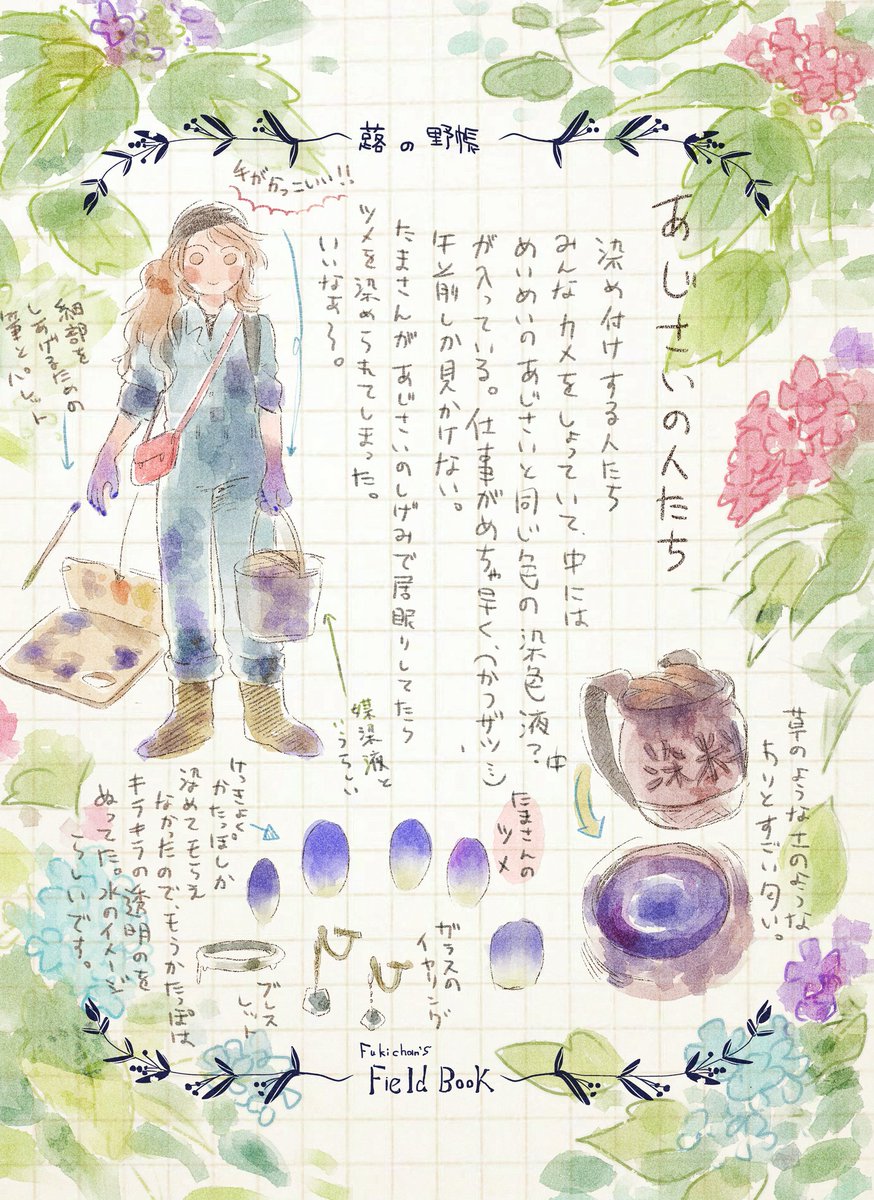 蕗の野帳
あじさいの人たち
染め付けする人たち
みんなカメをしょっていて、中には
めいめいのあじさいと同じ色の染色液?
が入っている。仕事がめちゃ早く、(かつザツ)
午前しか見かけない。
たまさんがあじさいのしげみで居眠りしてたら
ツメを染められてしまった。
いいなあ〜。
手がかっこいい!!
細部を
しあげるための
筆とパレット
媒染液と
いうらしい
草のような土のような
わりとすごい匂い。
染料
中
たまさんの
ツメ
けっきょく。
かたっぽしか
染めてもらえ
なかったので、もうかたっぽは
キラキラの透明のを
ぬってた。水のイメージ
らしいです。
ガラスの
イヤリング
ブレス
レット
Fukichan's
Field Book